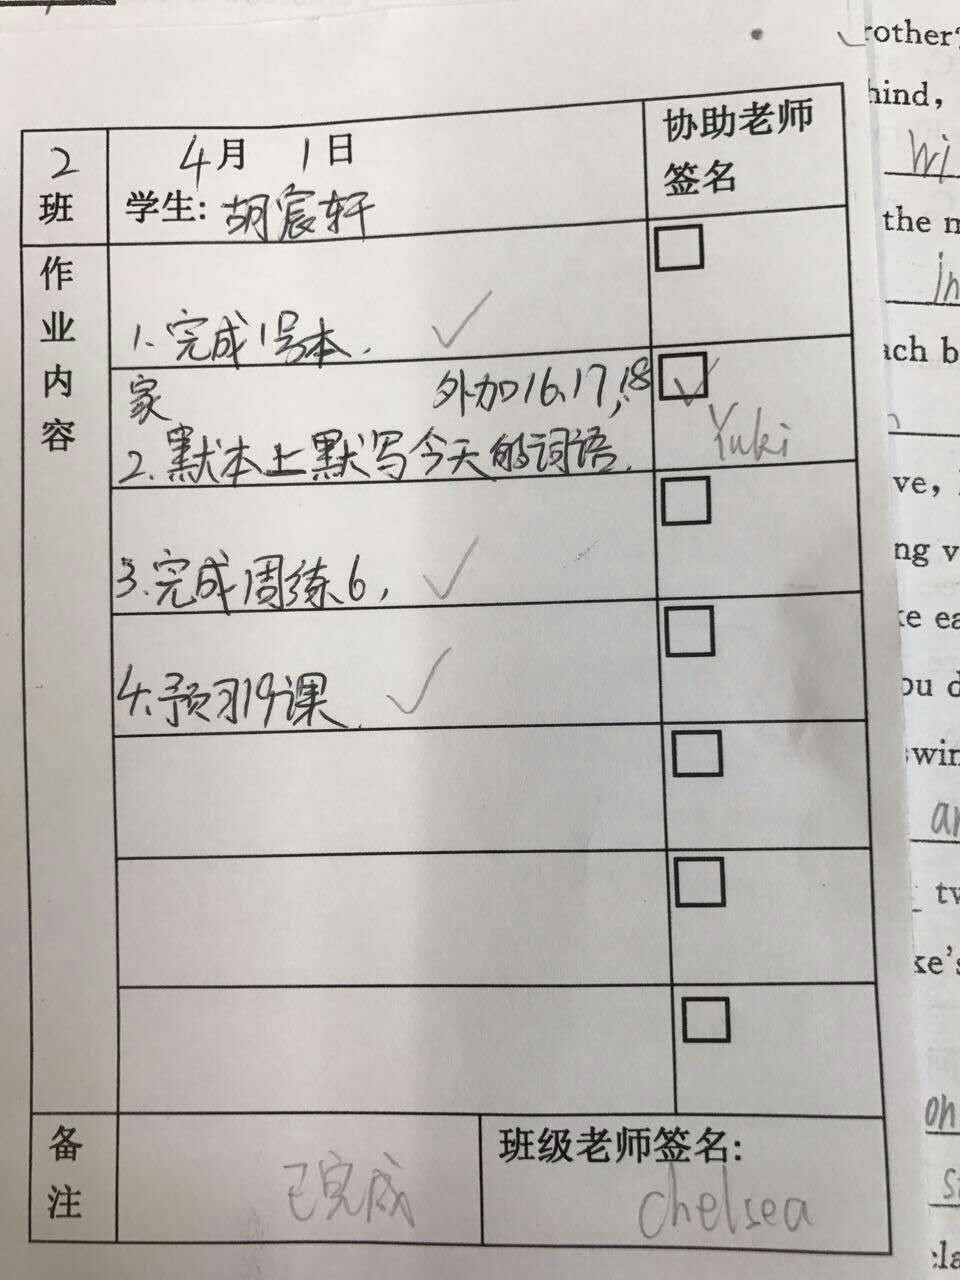 2班
4月 1日
学生: 胡宸轩
协助老师
签名
作业内容
1. 完成1号本.
家 外加16、17,18
2. 默本上默写今天的词语.
Yuki
3. 完成周练6,
4. 预习19课
备注
已完成
班级老师签名:
chelsea
rother?
hind,
wi
the m
in
ach b
ve,
ng v
ke ea
ou d
swin
an
tw
ke's
on
s
cla